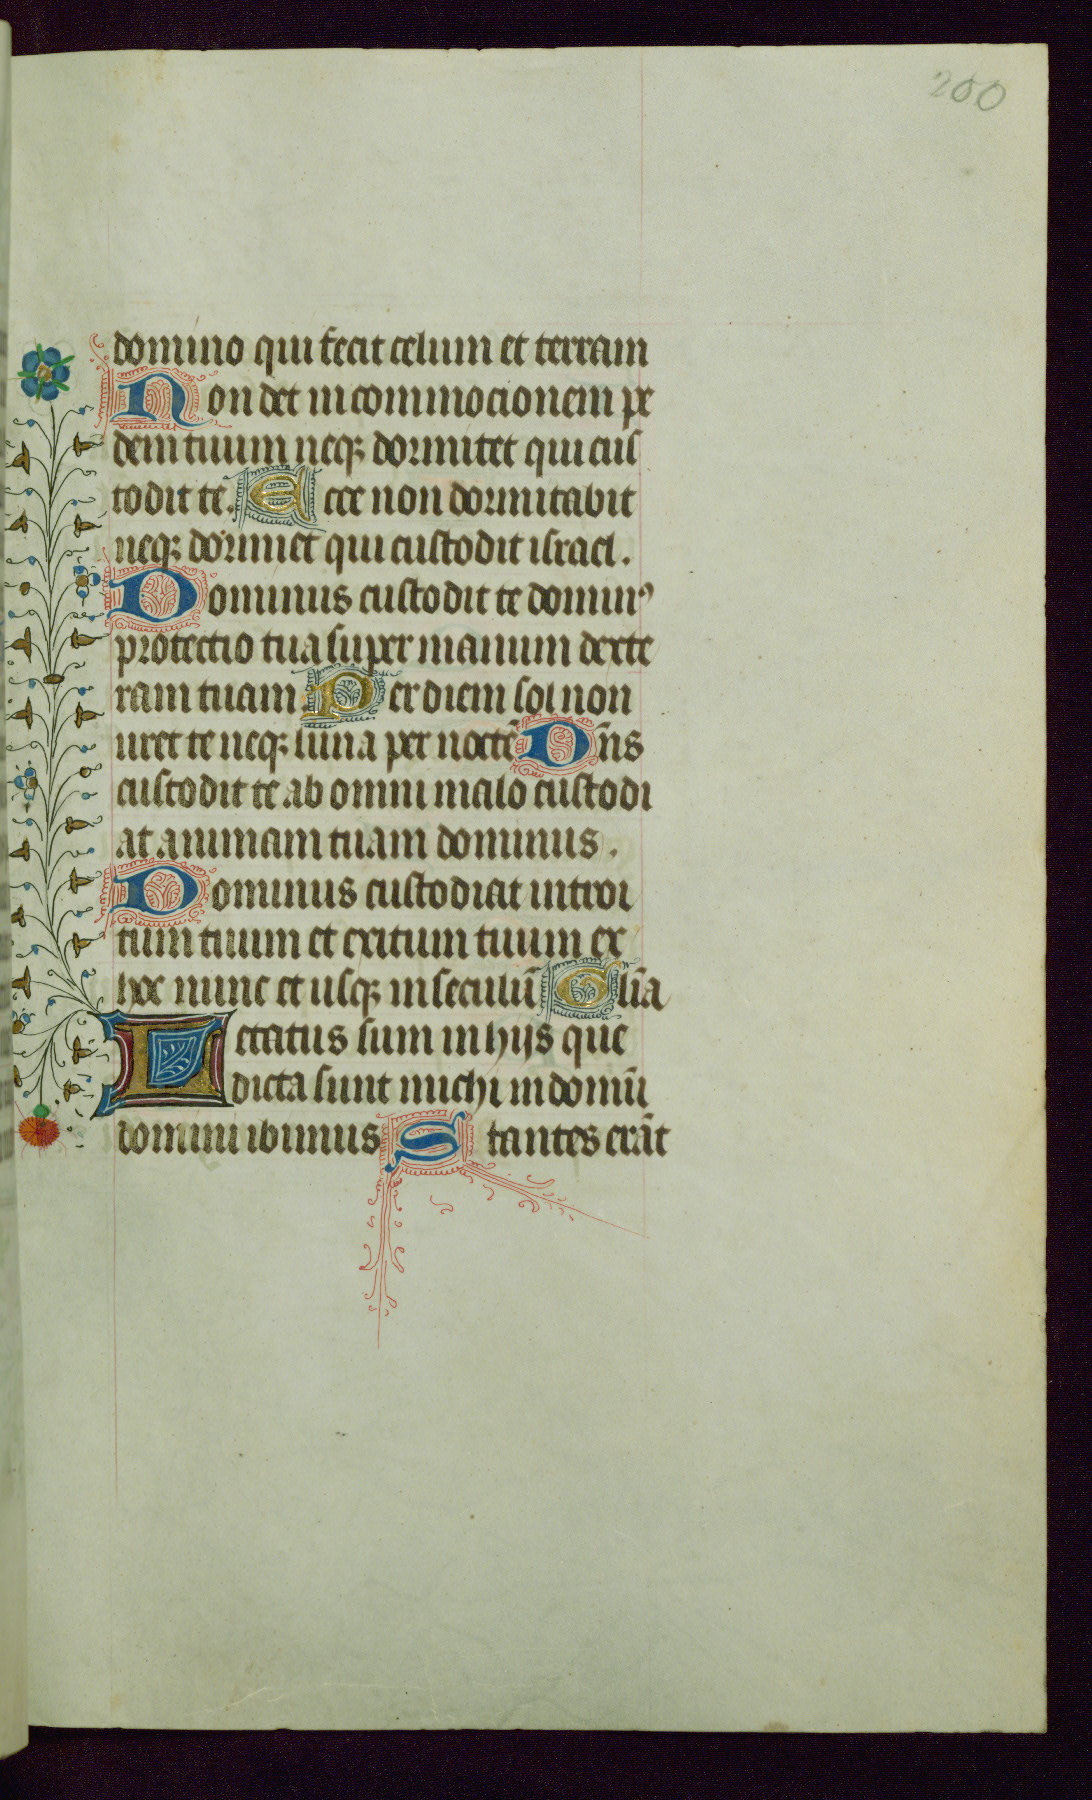 200
domino qui fecit celum et terram
Non det in commocionem pe
dem tuum neqꝫ dormitet qui cus
todit te. Ecce non dormitabit
neqꝫ dormiet qui custodit israel.
Dominus custodit te dominꝰ
protectio tua super manum dexte
ram tuam. Per diem sol non
uret te neqꝫ luna per noctē Dn̄s
custodit te ab omni malo custodi
at animam tuam dominus.
Dominus custodiat introi
tum tuum et exitum tuum ex
hoc nunc et usqꝫ in seculū Glīa
Letatus sum in hijs que
dicta sunt michi in domū
domini ibimus Stantes erāt